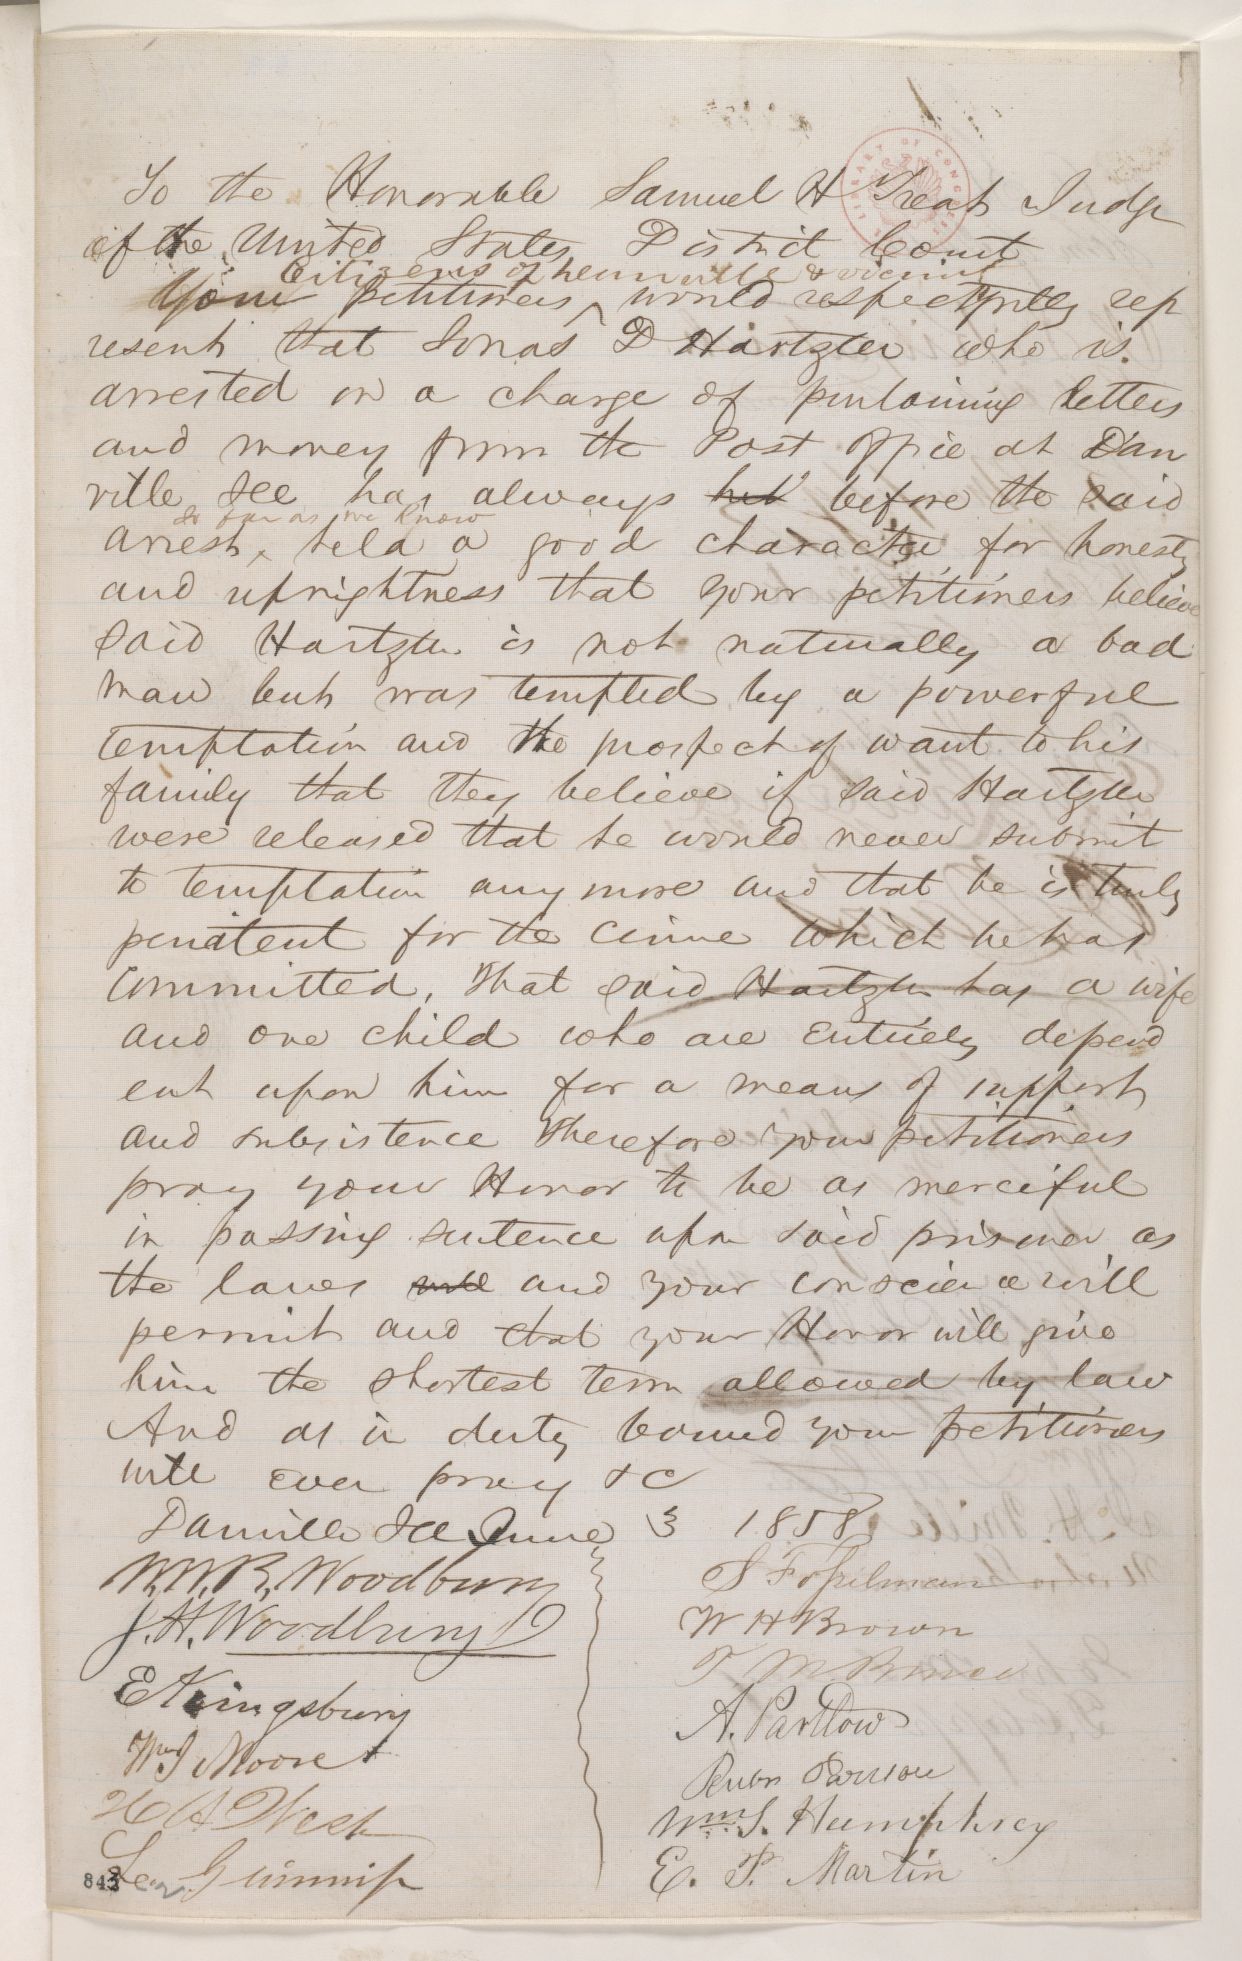 To the Honorable Samuel H Treat Judge
of the United States District Court
Citizens of Denmark & vicinity
Your petitioners ^ would respectfully rep
resent that Jonas D Hartzler who is
arrested on a charge of purloining letters
and money from the Post office at Dan
ville Ill has always before the said
so far as we know
arrest ^ held a good character for honesty
and uprightness that your petitioners believe
said Hartzler is not naturally a bad
man but was tempted by a powerful
temptation and the prospect of want to his
family that they believe if said Hartzler
were released that he would never submit
to temptation any more and that he is truly
penitent for the crime which he has
committed, That said Hartzler has a wife
and one child who are entirely depend
ent upon him for a means of support
and subsistence Therefore your petitioners
pray your Honor to be as merciful
in passing sentence upon said prisoner as
the laws will and your conscience will
permit and that your Honor will give
him the shortest term allowed by law
And as in duty bound your petitioners
will ever pray &c
Danville Ill June 3 1858
W. W. R. Woodbury
J. H. Woodbury
E Kingsbury
Wm I Moore
Gunnip
W H Brown
A. Partlow
Wm S. Humphrey
E. P. Martin
842
LIBRARY OF CONGRESS